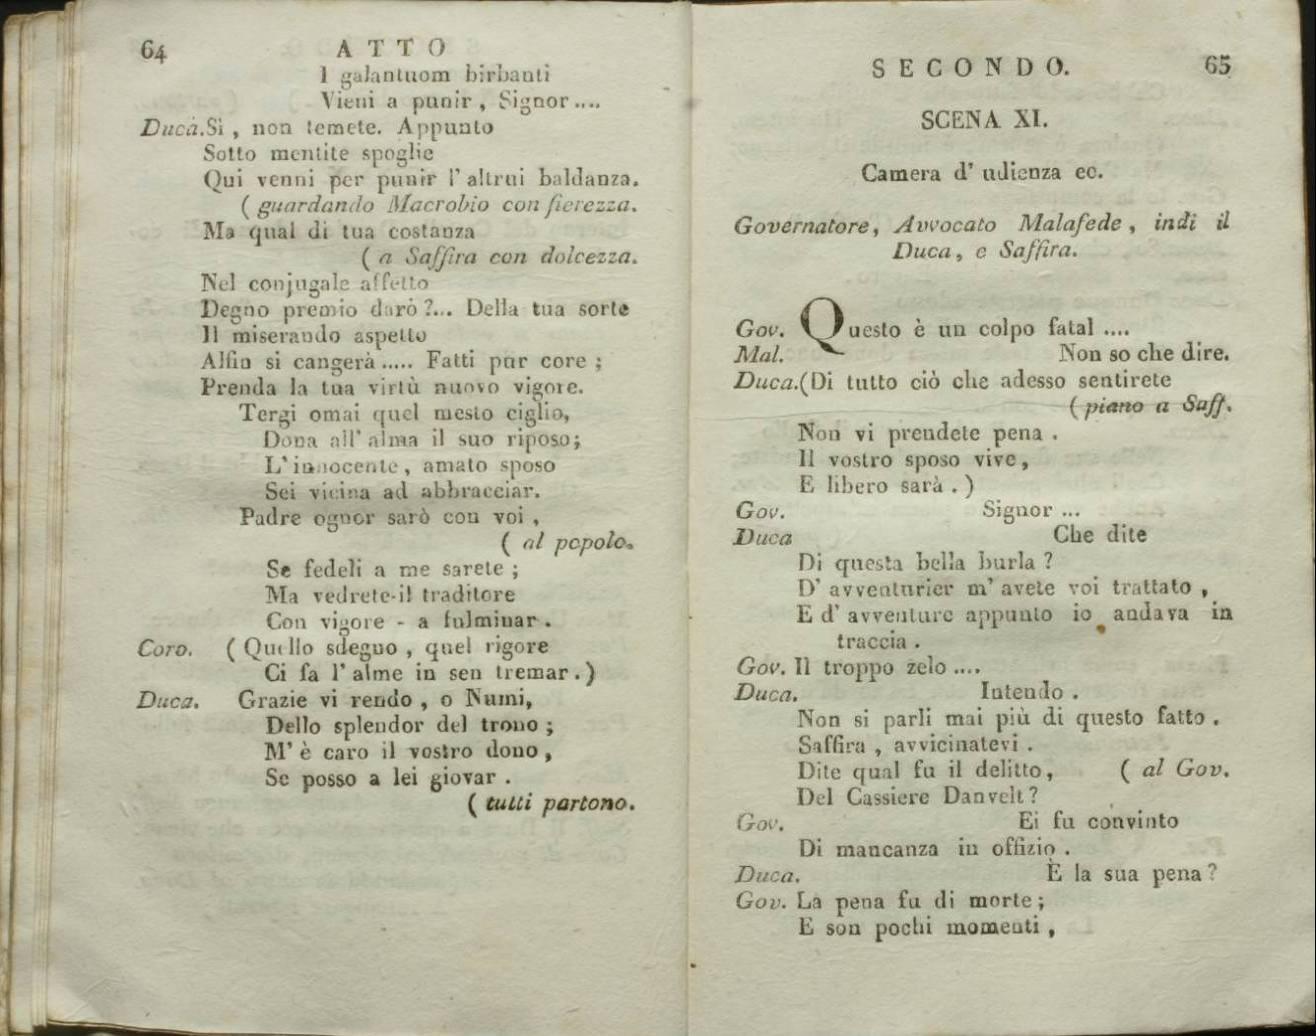 64 ATTO
I galantuom birbanti
Vieni a punir, Signor....
Duca. Sì, non temete. Appunto
Sotto mentite spoglie
Qui venni per punir l'altrui baldanza.
( guardando Macrobio con fierezza.
Ma qual di tua costanza
( a Saffira con dolcezza.
Nel conjugale affetto
Degno premio darò?... Della tua sorte
Il miserando aspetto
Alfin si cangerà ..... Fatti pur core ;
Prenda la tua virtù nuovo vigore.
Tergi omai quel mesto ciglio,
Dona all'alma il suo riposo;
L'innocente, amato sposo
Sei vicina ad abbracciar.
Padre ognor sarò con voi ,
( al popolo.
Se fedeli a me sarete ;
Ma vedrete-il traditore
Con vigore - a fulminar .
Coro. ( Quello sdegno , quel rigore
Ci fa l'alme in sen tremar . )
Duca. Grazie vi rendo , o Numi,
Dello splendor del trono ;
M'è caro il vostro dono ,
Se posso a lei giovar .
( tutti partono.
SECONDO. 65
SCENA XI.
Camera d'udienza ec.
Governatore, Avvocato Malafede, indi il
Duca, e Saffira.
Gov. Questo è un colpo fatal ....
Mal. Non so che dire.
Duca. (Di tutto ciò che adesso sentirete
( piano a Saff.
Non vi prendete pena .
Il vostro sposo vive,
E libero sarà . )
Gov. Signor ...
Duca Che dite
Di questa bella burla ?
D'avventurier m'avete voi trattato ,
E d'avventure appunto io andava in
traccia .
Gov. Il troppo zelo ....
Duca. Intendo .
Non si parli mai più di questo fatto .
Saffira , avvicinatevi .
Dite qual fu il delitto, ( al Gov.
Del Cassiere Danvelt?
Gov. Ei fu convinto
Di mancanza in offizio .
Duca. È la sua pena?
Gov. La pena fu di morte;
E son pochi momenti ,